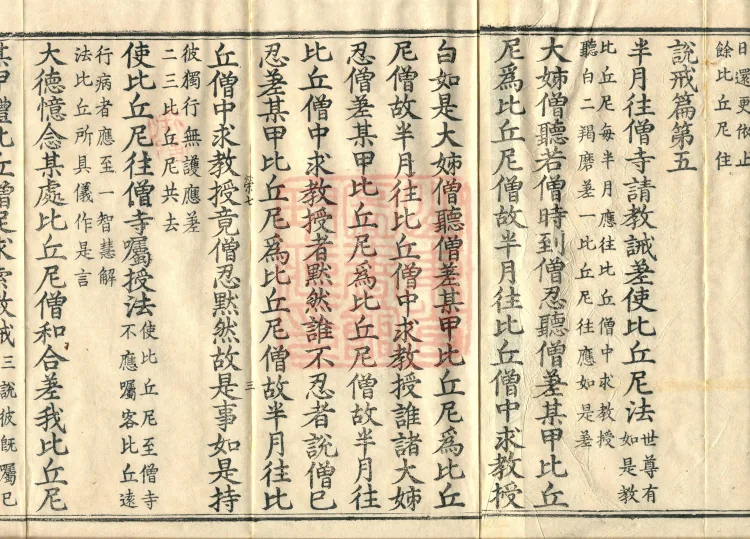 日還更依止
餘比丘尼住
說戒篇第五
半月往僧寺請教誡差使比丘尼法
世尊有
如是教
比丘尼每半月應往比丘僧中求教授
聽白二羯磨差一比丘尼往應如是差
大姊僧聽若僧時到僧忍聽僧差某甲比丘
尼爲比丘尼僧故半月往比丘僧中求教授
白如是大姊僧聽僧差某甲比丘尼爲比丘
尼僧故半月往比丘僧中求教授誰諸大姊
忍僧差某甲比丘尼爲比丘尼僧故半月往
比丘僧中求教授者默然誰不忍者說僧已
忍差某甲比丘尼爲比丘尼僧故半月往比
榮七 三
丘僧中求教授竟僧忍默然故是事如是持
彼獨行無護應差
二三比丘尼共去
使比丘尼往僧寺囑授法
使比丘尼至僧寺
不應囑客比丘遠
行病者應至一智慧解
法比丘所具儀作是言
大德憶念某處比丘尼僧和合差我比丘尼
某甲禮比丘僧足求索教戒三說彼既囑已